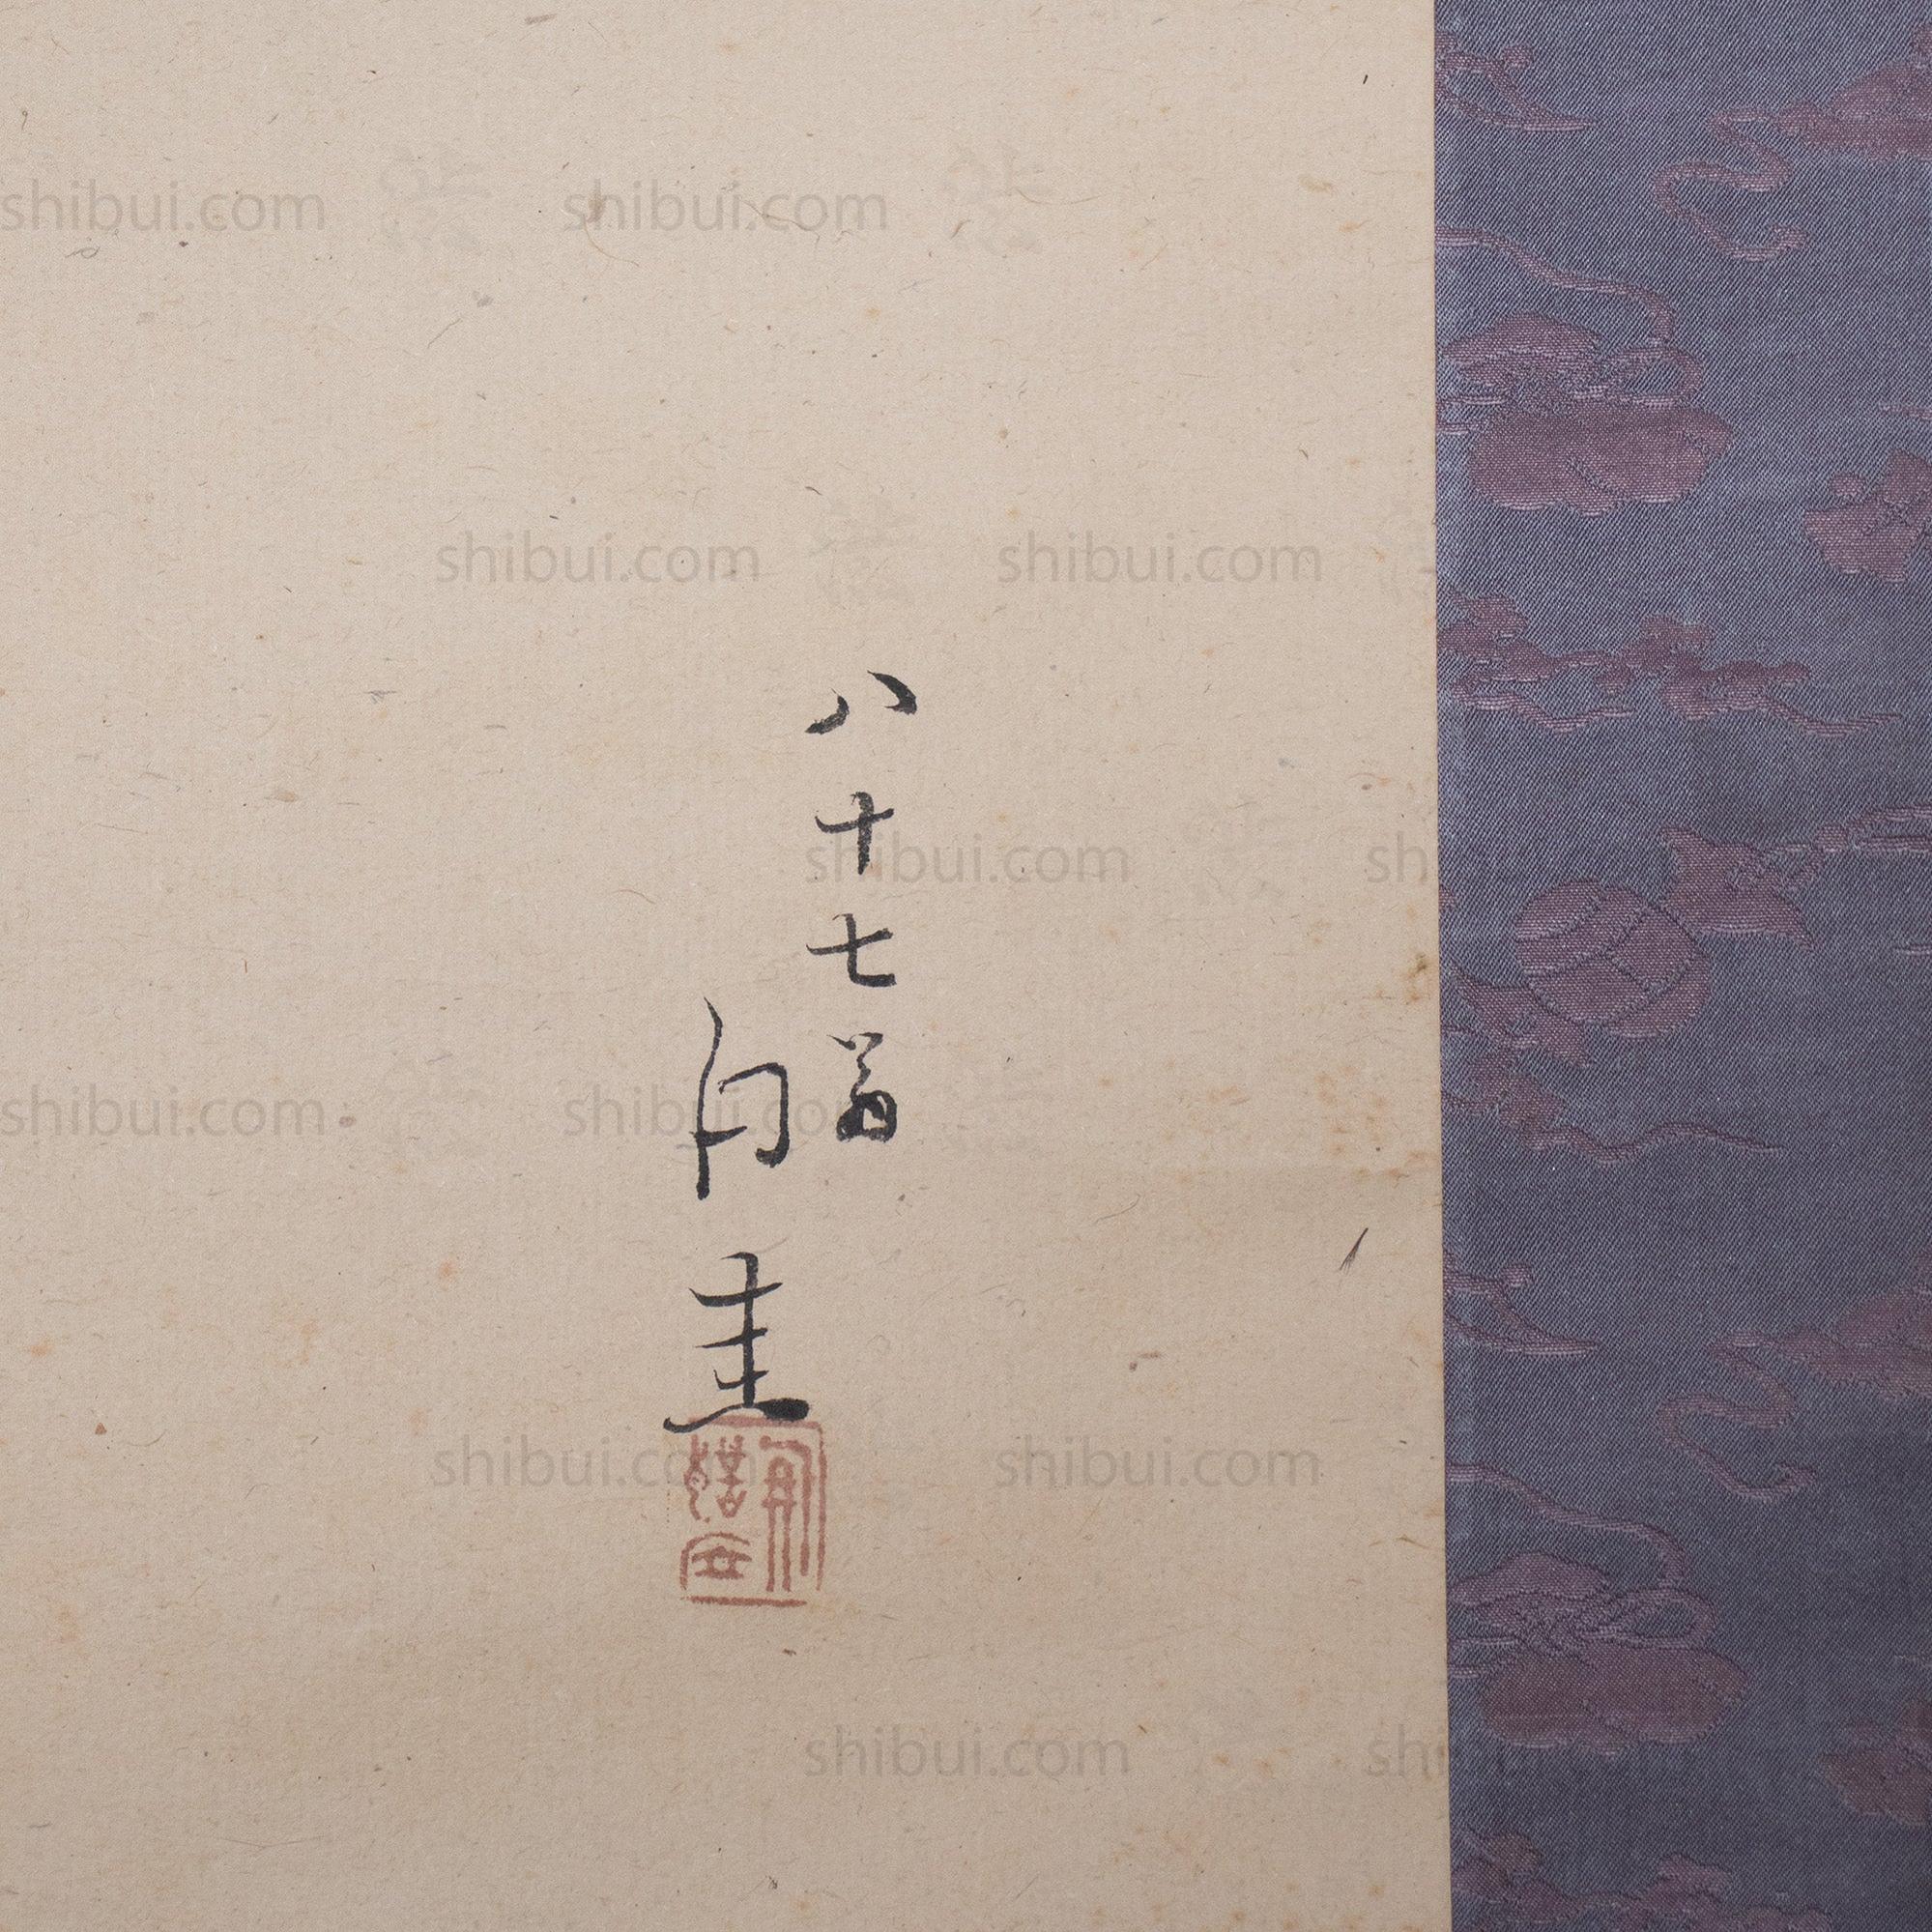 八十七翁
月圭
shibui.com
shibui.com
shibui.com
shibui.com
shibui.com
sh
shibui.com
shibui.com
shibui.com
shibui.com
shibui.com
sh